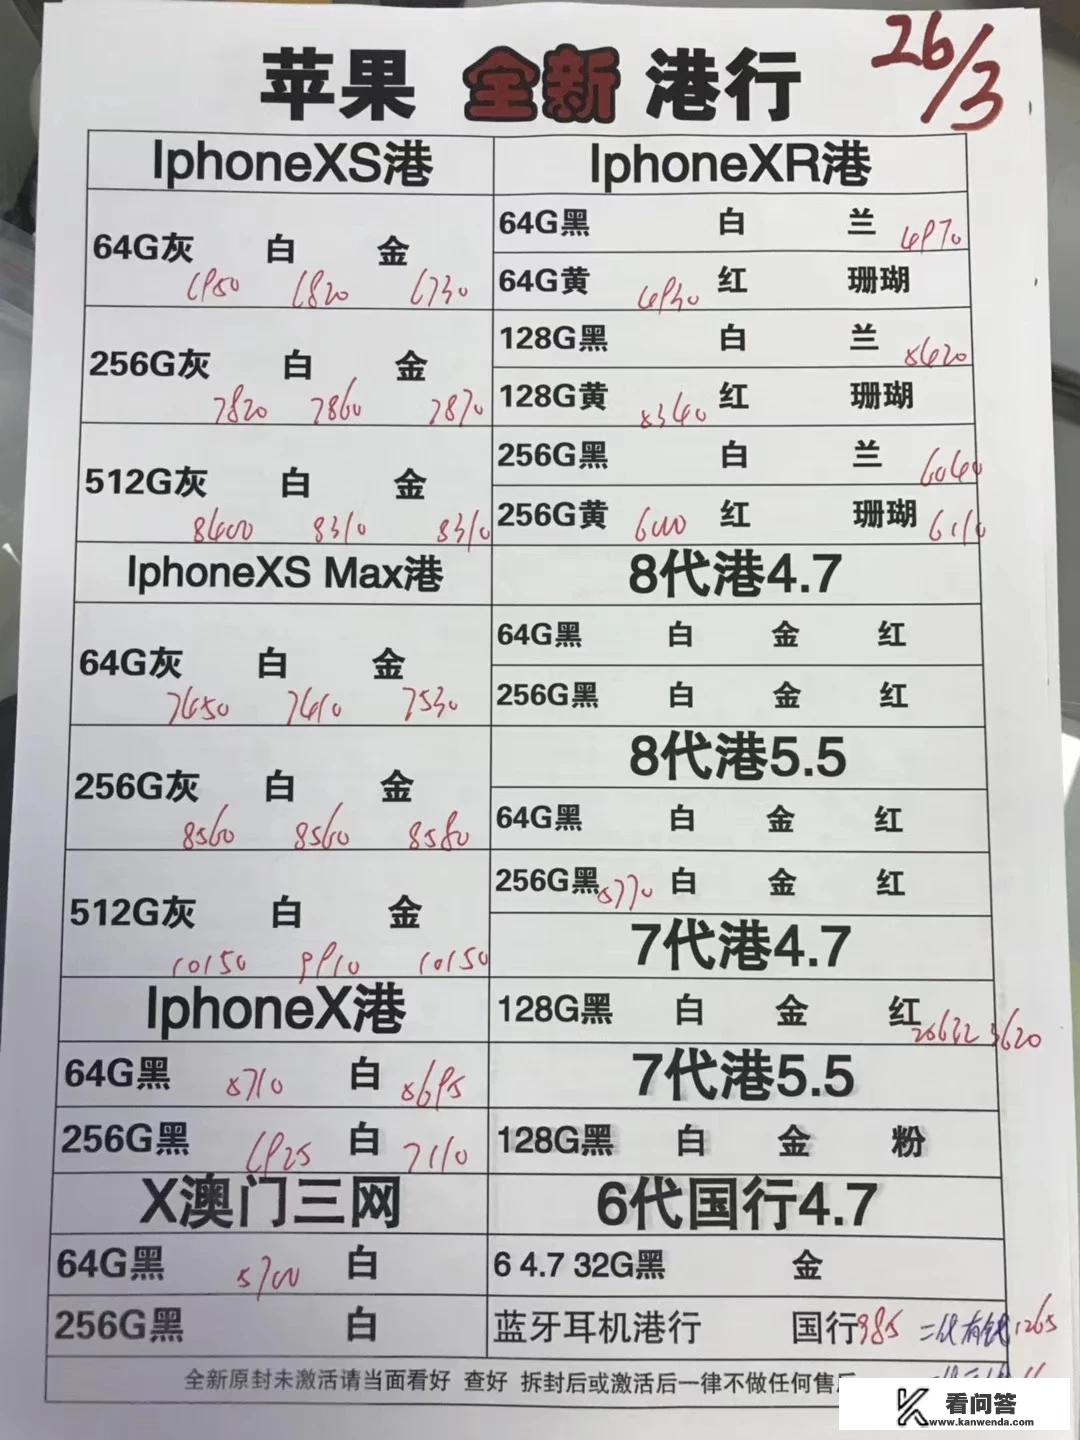 苹果 全新 港行
26/3
IphoneXS港
64G灰 白 金
6950 6820 6730
256G灰 白 金
7820 7860 7870
512G灰 白 金
8400 8310 8310
IphoneXS Max港
64G灰 白 金
7450 7410 7530
256G灰 白 金
8560 8560 8580
512G灰 白 金
10150 9910 10150
IphoneX港
64G黑 5710 白 5695
256G黑 6925 白 7110
X澳门三网
64G黑 5700 白
256G黑 白
IphoneXR港
64G黑 白 兰 4970
64G黄 4930 红 珊瑚
128G黑 白 兰 5420
128G黄 5340 红 珊瑚
256G黑 白 兰 6040
256G黄 6000 红 珊瑚 6110
8代港4.7
64G黑 白 金 红
256G黑 白 金 红
8代港5.5
64G黑 白 金 红
256G黑 5770 白 金 红
7代港4.7
128G黑 白 金 红
7代港5.5
128G黑 白 金 粉
6代国行4.7
6 4.7 32G黑 金
蓝牙耳机港行 国行985 二代有线1265
全新原封未激活请当面看好 查好 拆封后或激活后一律不做任何售后
看问答
www.kanwenda.com